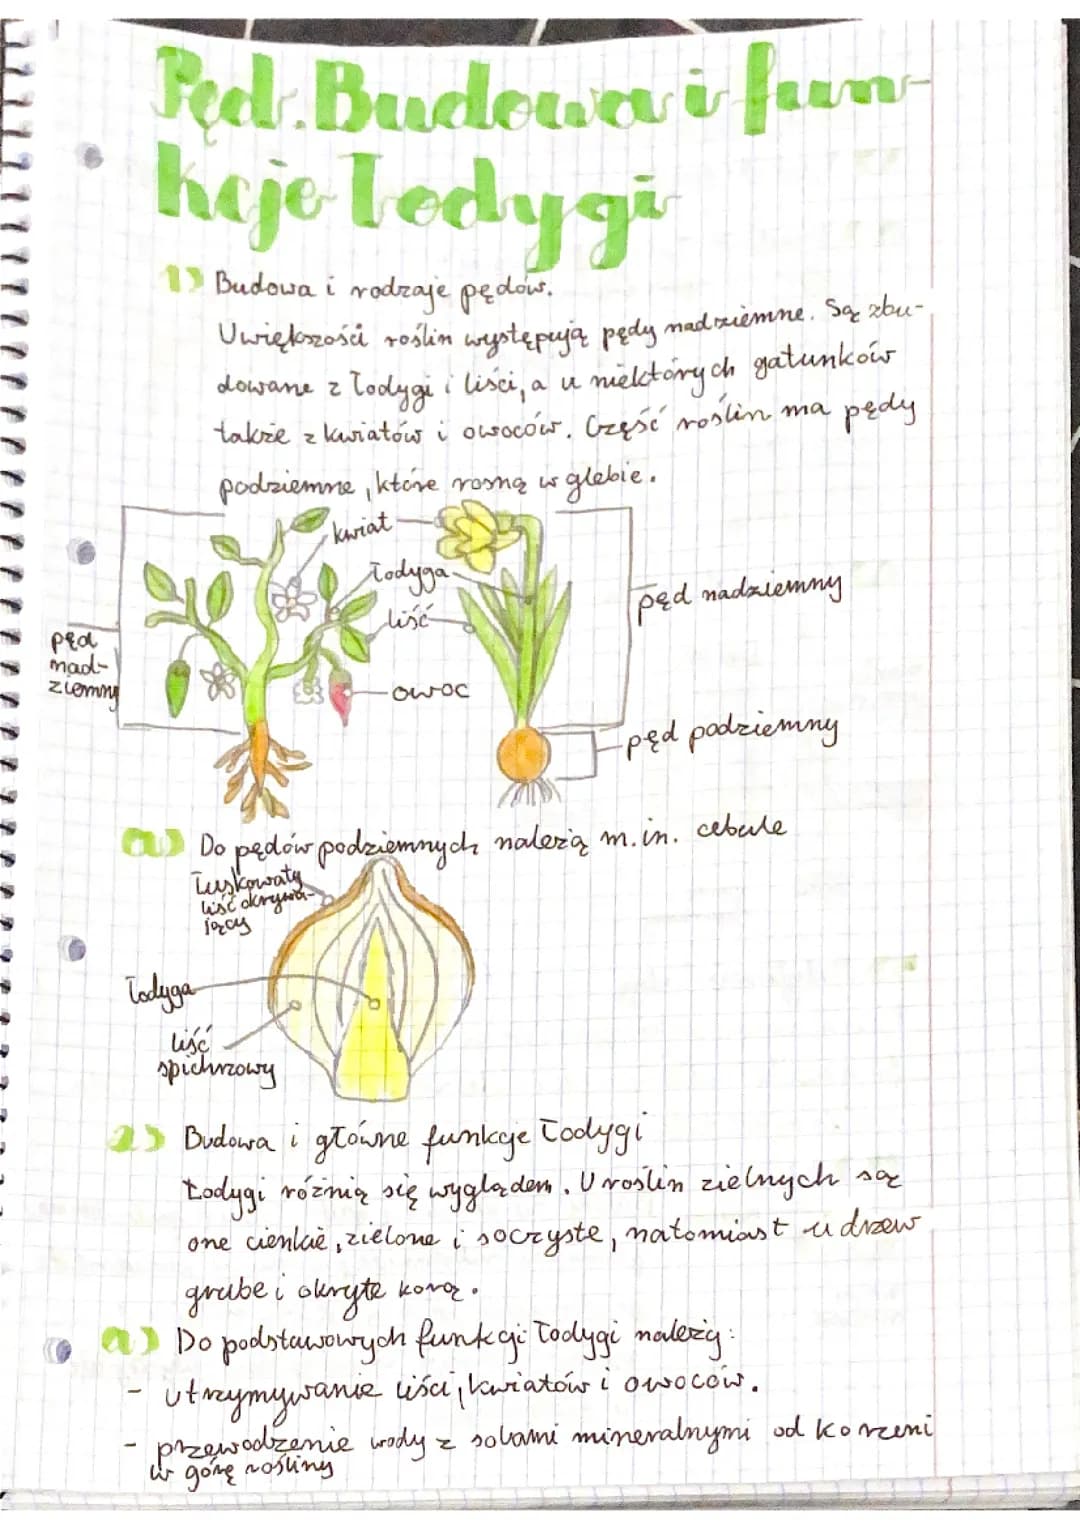 Pęd. Budowa i fun-
kcje łodygi
1) Budowa i rodzaje pędów.
U większości roślin występują pędy nadziemne. Są zbu-
dowane z łodygi i liści, a u niektórych gatunków
także z kwiatów i owoców. Część roślin ma pędy
podziemne, które rosną w glebie.
kwiat
łodyga
liść
owoc
pęd
nad-
ziemny
pęd nadziemny
pęd podziemny
a) Do pędów podziemnych należą m.in. cebule
Łuskowaty
liść okrywa-
jący
łodyga
liść
spichrzowy
2) Budowa i główne funkcje łodygi
Łodygi różnią się wyglądem. U roślin zielnych są
one cienkie, zielone i soczyste, natomiast u drzew
grube i okryte korą.
a) Do podstawowych funkcji łodygi należą:
- utrzymywanie liści, kwiatów i owoców.
- przewodzenie wody z solami mineralnymi od korzeni
w górę rośliny